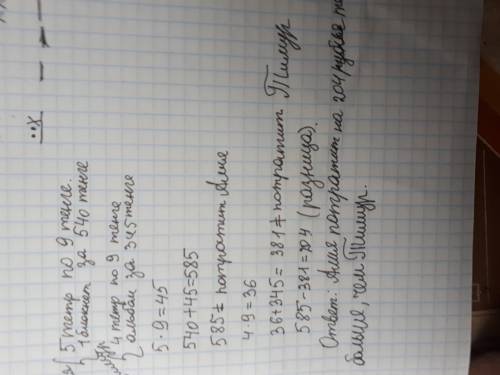 5 тетр по 9 тенге.
1 блокнот за 540 тенге
4 тетр по 9 тенге
2 альбом за 345 тенге
5 · 9 = 45
540 + 45 = 585
585 ₸ потратит Алия
4 · 9 = 36
36 + 345 = 381 ₸ потратит Тимур
585 - 381 = 204 (разница).
Ответ: Алия потратит на 204
больше, чем Тимур.